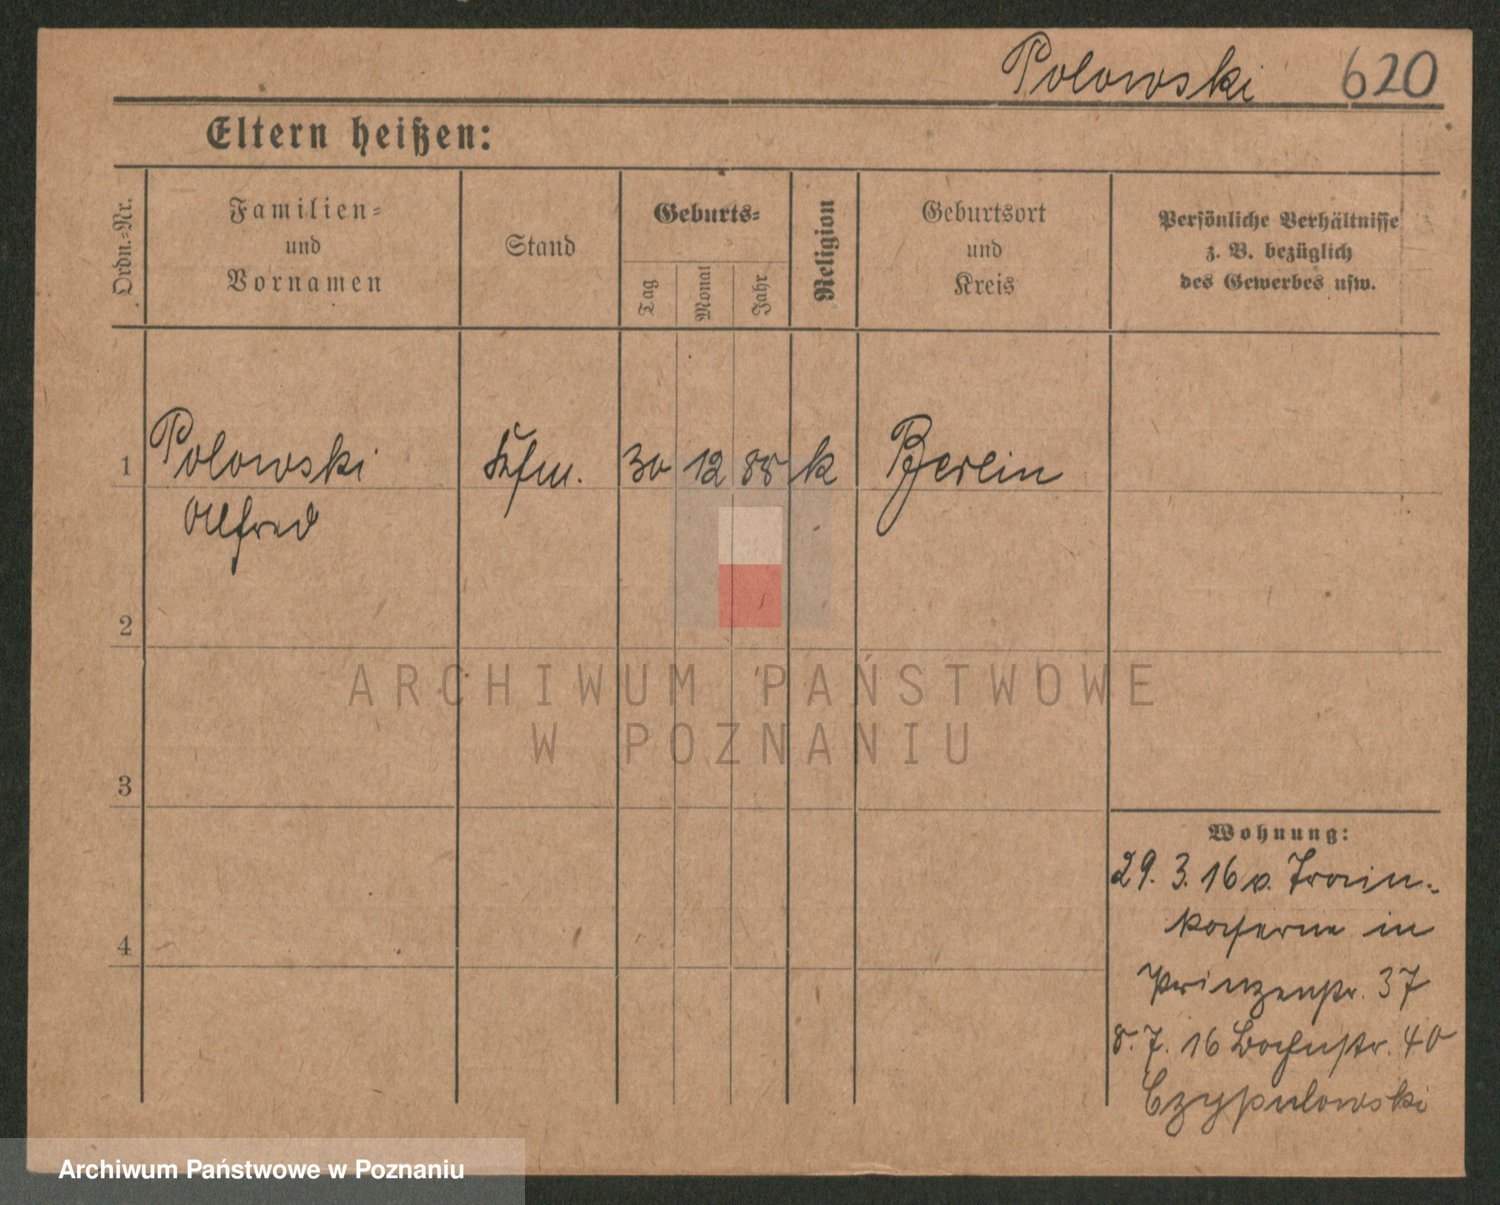 Polowski 620
Eltern heißen:
Ordn.-Nr.
Familien-
und
Vornamen
Stand
Geburts-
Tag
Monat
Jahr
Religion
Geburtsort
und
Kreis
Persönliche Verhältnisse
z. B. bezüglich
des Gewerbes usw.
1 Polowski Kfm. 30 12 88 k Berlin
Alfred
2
ARCHIWUM PAŃSTWOWE
W POZNANIU
3
Wohnung:
29. 3. 16 v. Train-
kaserne in
Prinzenstr. 37
4
8. 7. 16 Bahnstr. 40
Czypulowski
Archiwum Państwowe w Poznaniu